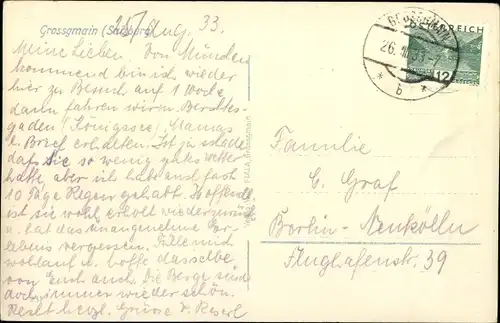 Grossgmain (Salzburg)
25/Aug. 33.
Meine Lieben. Von München
kommend bin ich wieder
hier zu Besuch auf 1 Woche
dann fahren wir n. Berchtes-
gaden (Königssee) Mamas
l. Brief erhalten. Ist ja schade
daß sie so wenig gutes Wetter
hatte, aber ich habe auch fast
10 Tage Regen gehabt. Hoffentl.
ist sie wohl erholt wieder zurück
u. hat das unangenehme Vor-
vergessen. Bin
wohlauf u. hoffe dasselbe
von Euch auch. Die Berge sind
doch immer wieder schön.
Recht herzl. Grüsse v. Reserl
ÖSTERREICH
12
GROSSGMAIN
26. VIII. 33-7
* b *
Familie
C. Graf
Berlin-Neukölln
Flughafenstr. 39